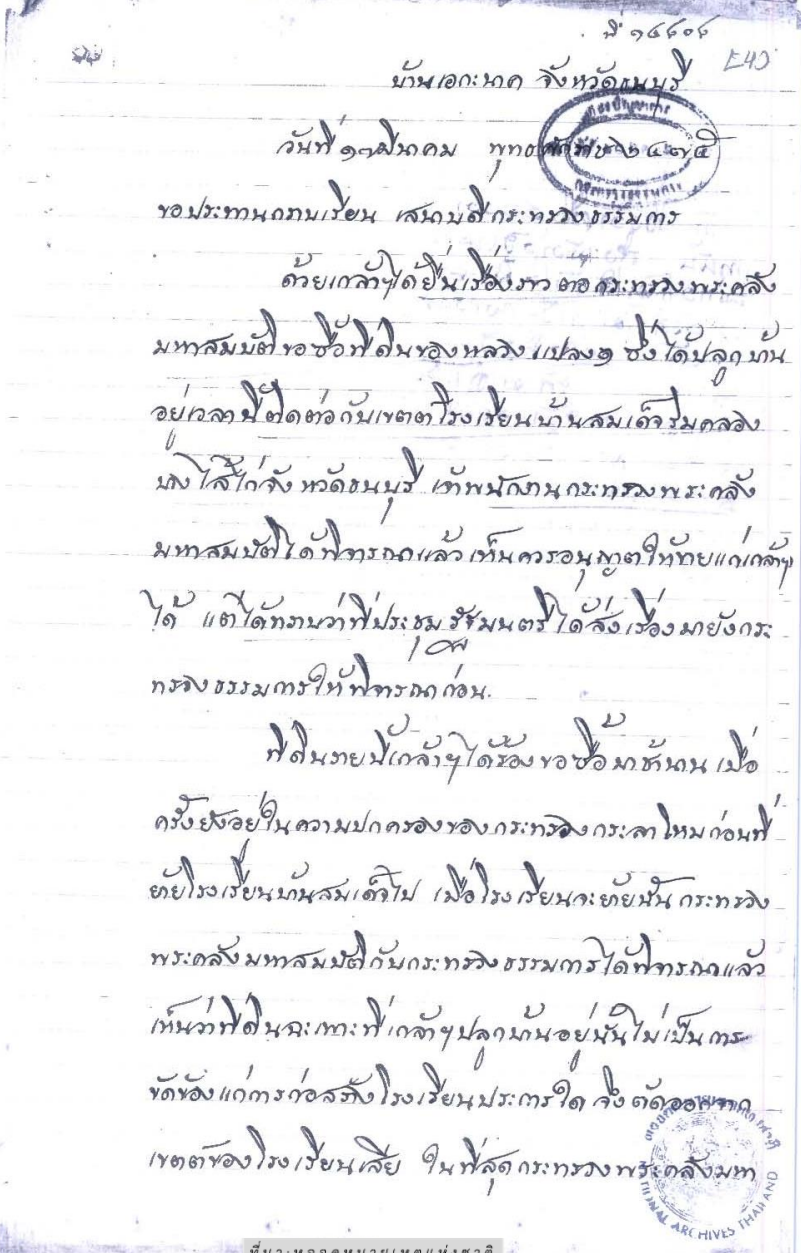 ที่ ๑๔๘๐๘
บ้านเอกะนาค จังหวัดธนบุรี
วันที่ ๑๓ มีนาคม พุทธศักราช ๒๔๗๕
ขอประทานกราบเรียน เสนาบดีกระทรวงธรรมการ
ด้วยเกล้าฯได้ยื่นเรื่องราวต่อกระทรวงพระคลัง
มหาสมบัติขอซื้อที่ดินของหลวงแปลง ๑ ซึ่งได้ปลูกบ้าน
อยู่เวลานี้ติดต่อกับเขตต์โรงเรียนบ้านสมเด็จริมคลอง
บางไส้ไก่จังหวัดธนบุรี เจ้าพนักงานกระทรวงพระคลัง
มหาสมบัติได้พิจารณาแล้วเห็นควรอนุญาตให้ขายแก่เกล้าฯ
ได้ แต่ได้ทราบว่าที่ประชุมรัฐมนตรีได้ส่งเรื่องมายังกระ
ทรวงธรรมการให้พิจารณาก่อน.
ที่ดินรายนี้เกล้าฯได้ร้องขอซื้อมาช้านาน เมื่อ
ครั้งยังอยู่ในความปกครองของกระทรวงกระลาโหมก่อนที่
ย้ายโรงเรียนบ้านสมเด็จไป เมื่อโรงเรียนจะย้ายนั้น กระทรวง
พระคลังมหาสมบัติกับกระทรวงธรรมการได้พิจารณาแล้ว
เห็นว่าที่ดินฉะเพาะที่เกล้าฯปลูกบ้านอยู่นั้นไม่เป็นการ
ขัดข้องแก่การก่อสร้างโรงเรียนประการใด จึงตัดออกจาก
เขตต์ของโรงเรียนเสีย ในที่สุดกระทรวงพระคลังมหา
NATIONAL ARCHIVES THAILAND
ที่มา: หอจดหมายเหตุแห่งชาติ